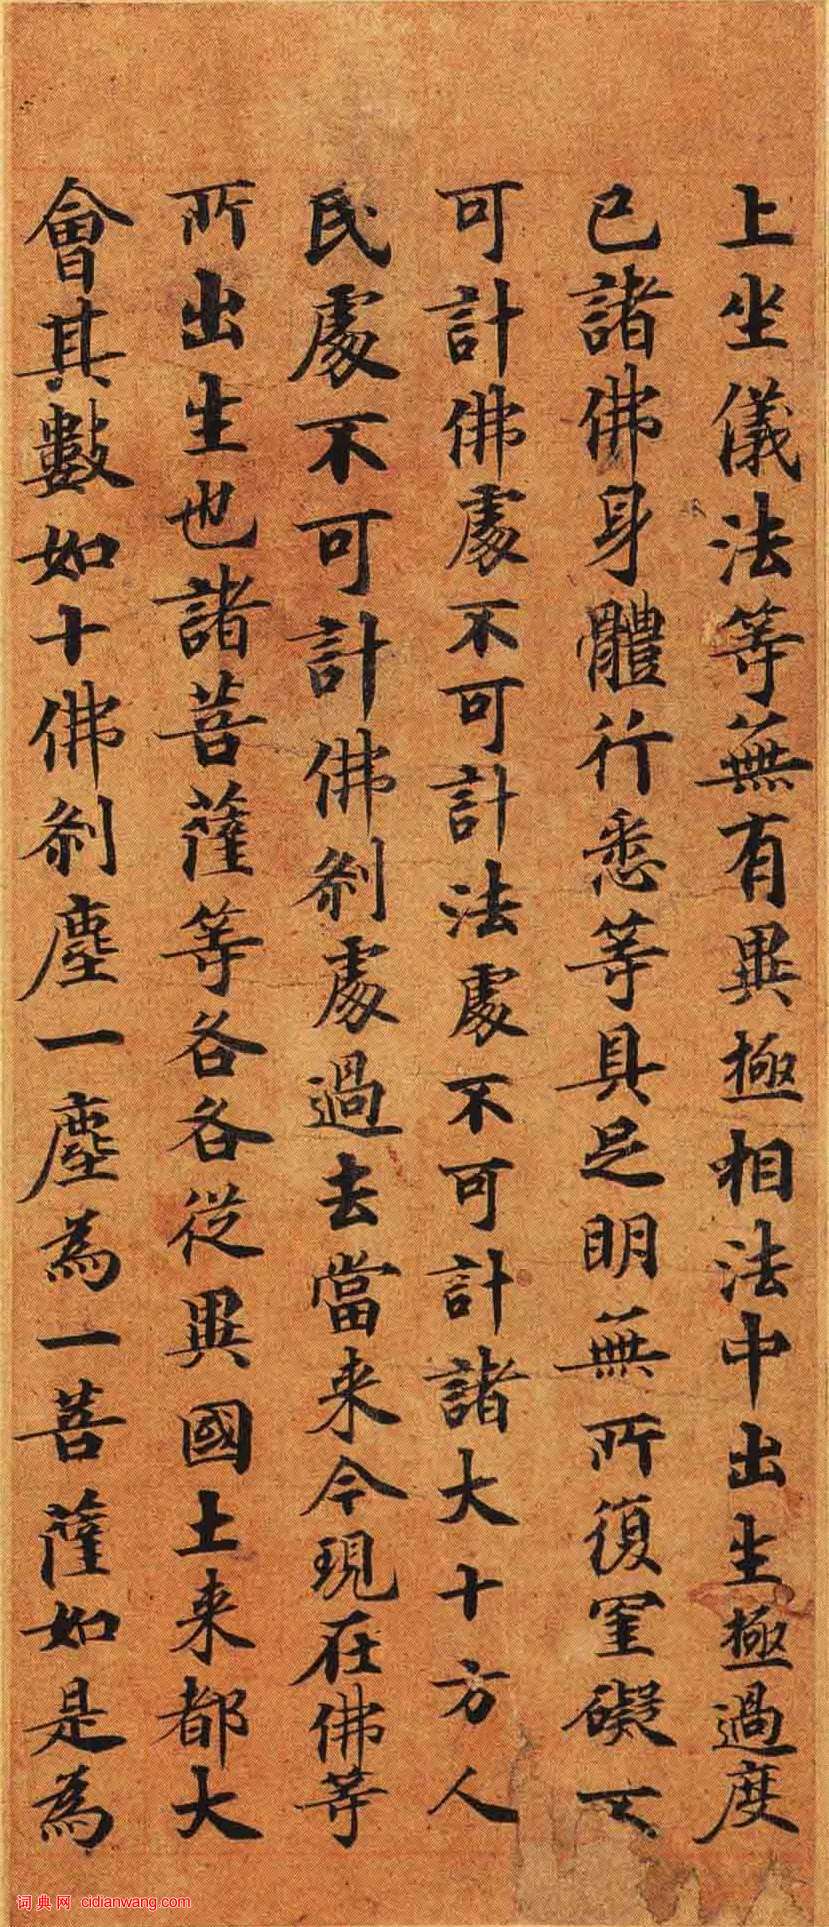 上坐儀法等無有異極相法中出生極過度
已諸佛身體行悉等具足明無所復罣礙不
可計佛處不可計法處不可計諸大十方人
民處不可計佛剎處過去當来今現在佛等
所出生也諸菩薩等各各從異國土来都大
會其數如十佛剎塵一塵為一菩薩如是為
词典网 cidianwang.com